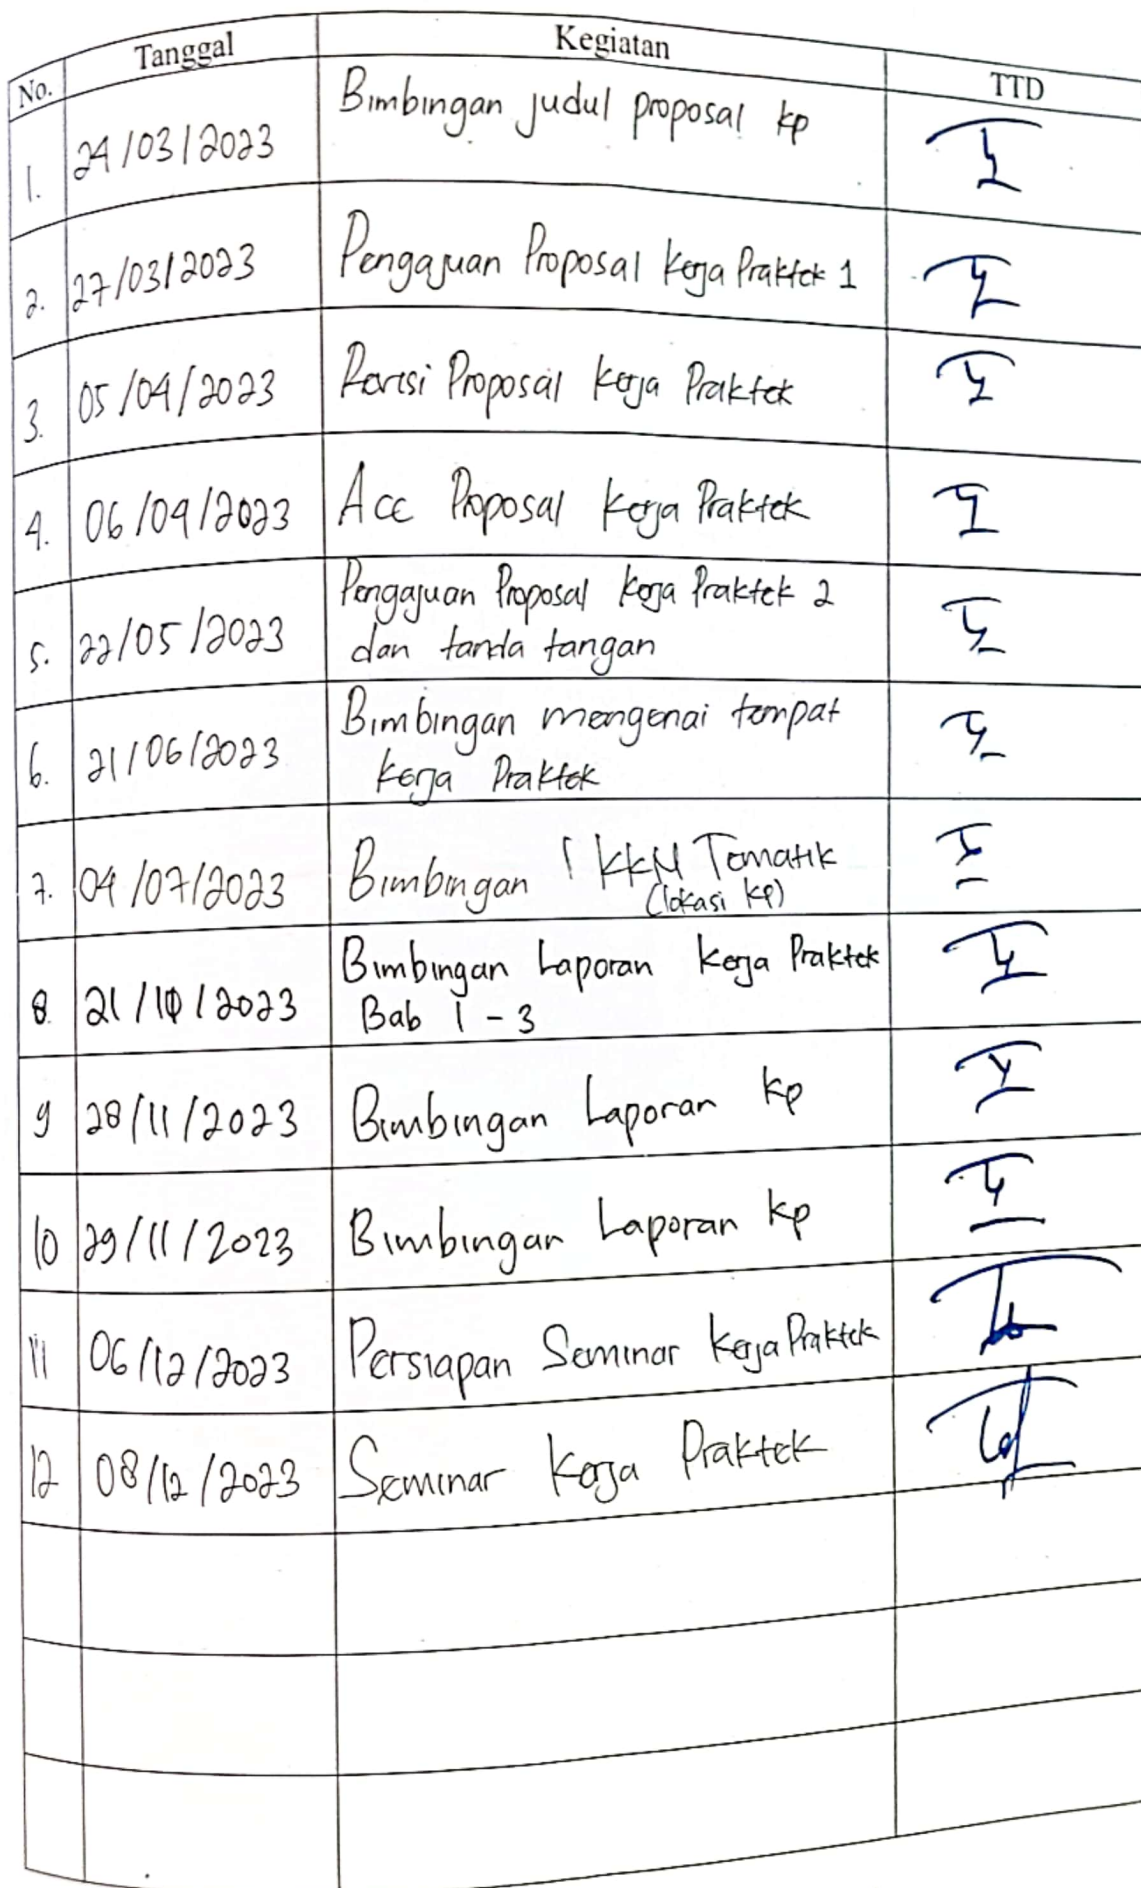 No. Tanggal Kegiatan TTD
1. 24/03/2023 Bimbingan judul proposal kp
2. 27/03/2023 Pengajuan Proposal kerja Praktek 1
3. 05/04/2023 Revisi Proposal kerja Praktek
4. 06/04/2023 Acc Proposal kerja Praktek
5. 22/05/2023 Pengajuan Proposal kerja Praktek 2
dan tanda tangan
6. 21/06/2023 Bimbingan mengenai tempat
kerja Praktek
7. 04/07/2023 Bimbingan 1 KKN Tematik
(lokasi KP)
8. 21/10/2023 Bimbingan Laporan kerja Praktek
Bab 1 - 3
9 28/11/2023 Bimbingan Laporan kp
10 29/11/2023 Bimbingan Laporan kp
11 06/12/2023 Persiapan Seminar kerja Praktek
12 08/12/2023 Seminar kerja Praktek